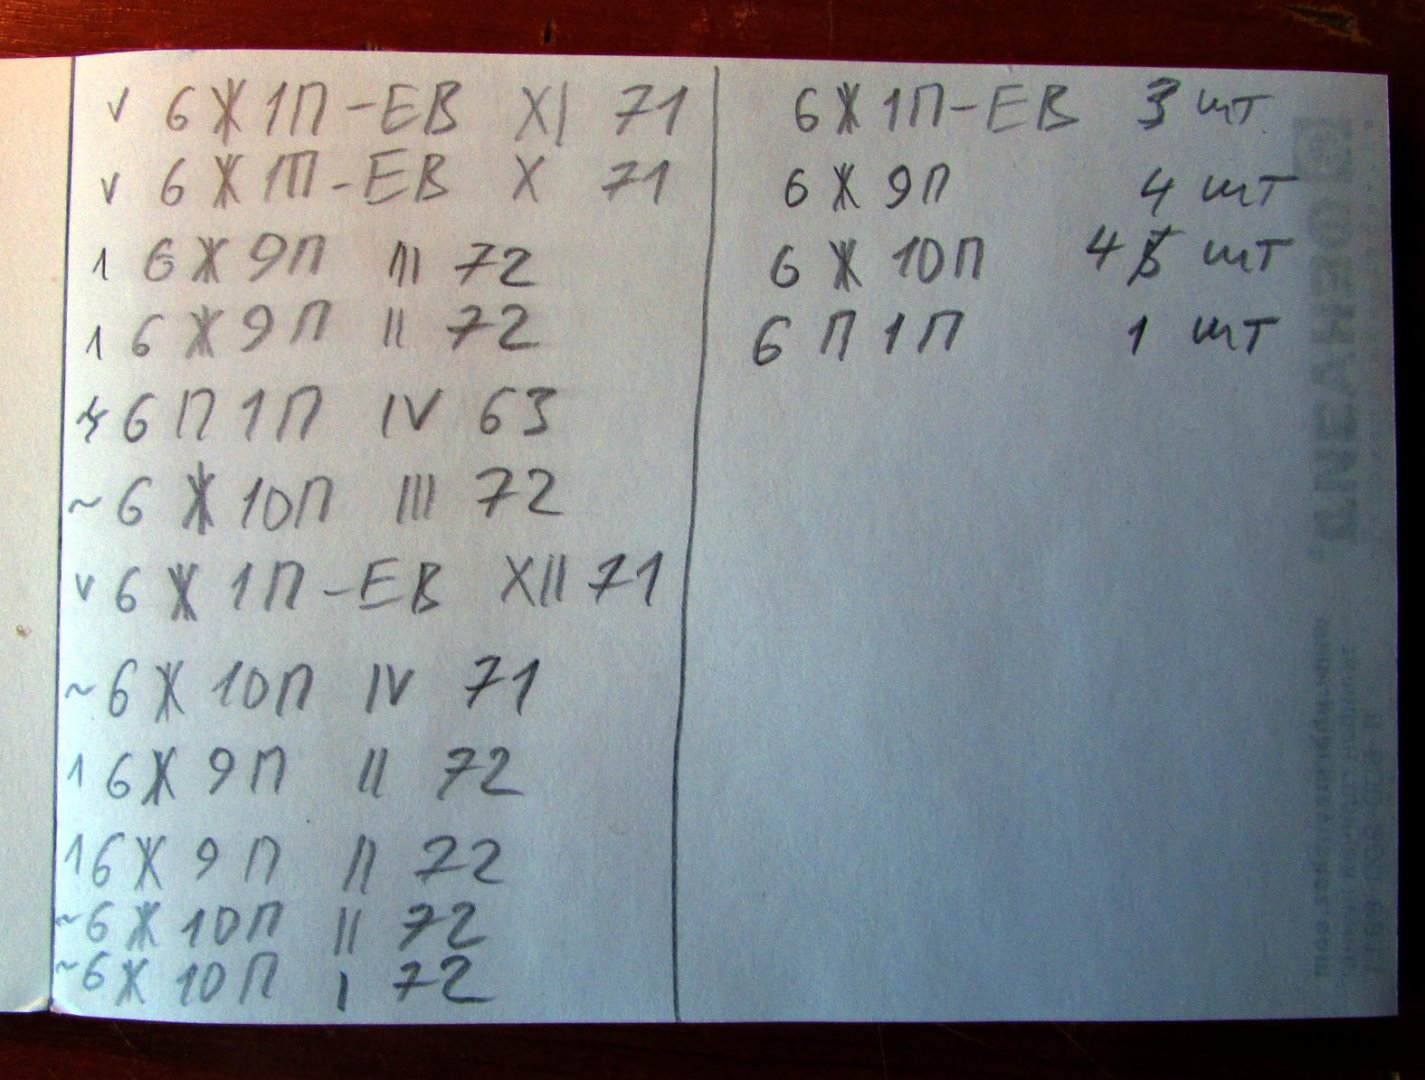 v 6Ж1П-ЕВ XI 71
v 6Ж1П-ЕВ X 71
1 6Ж9П III 72
1 6Ж9П II 72
6П1П IV 63
~ 6Ж10П III 72
v 6Ж1П-ЕВ XII 71
~ 6Ж10П IV 71
1 6Ж9П II 72
1 6Ж9П II 72
~ 6Ж10П II 72
~ 6Ж10П I 72
6Ж1П-ЕВ 3 шт.
6Ж9П 4 шт
6Ж10П 4 шт
6П1П 1 шт